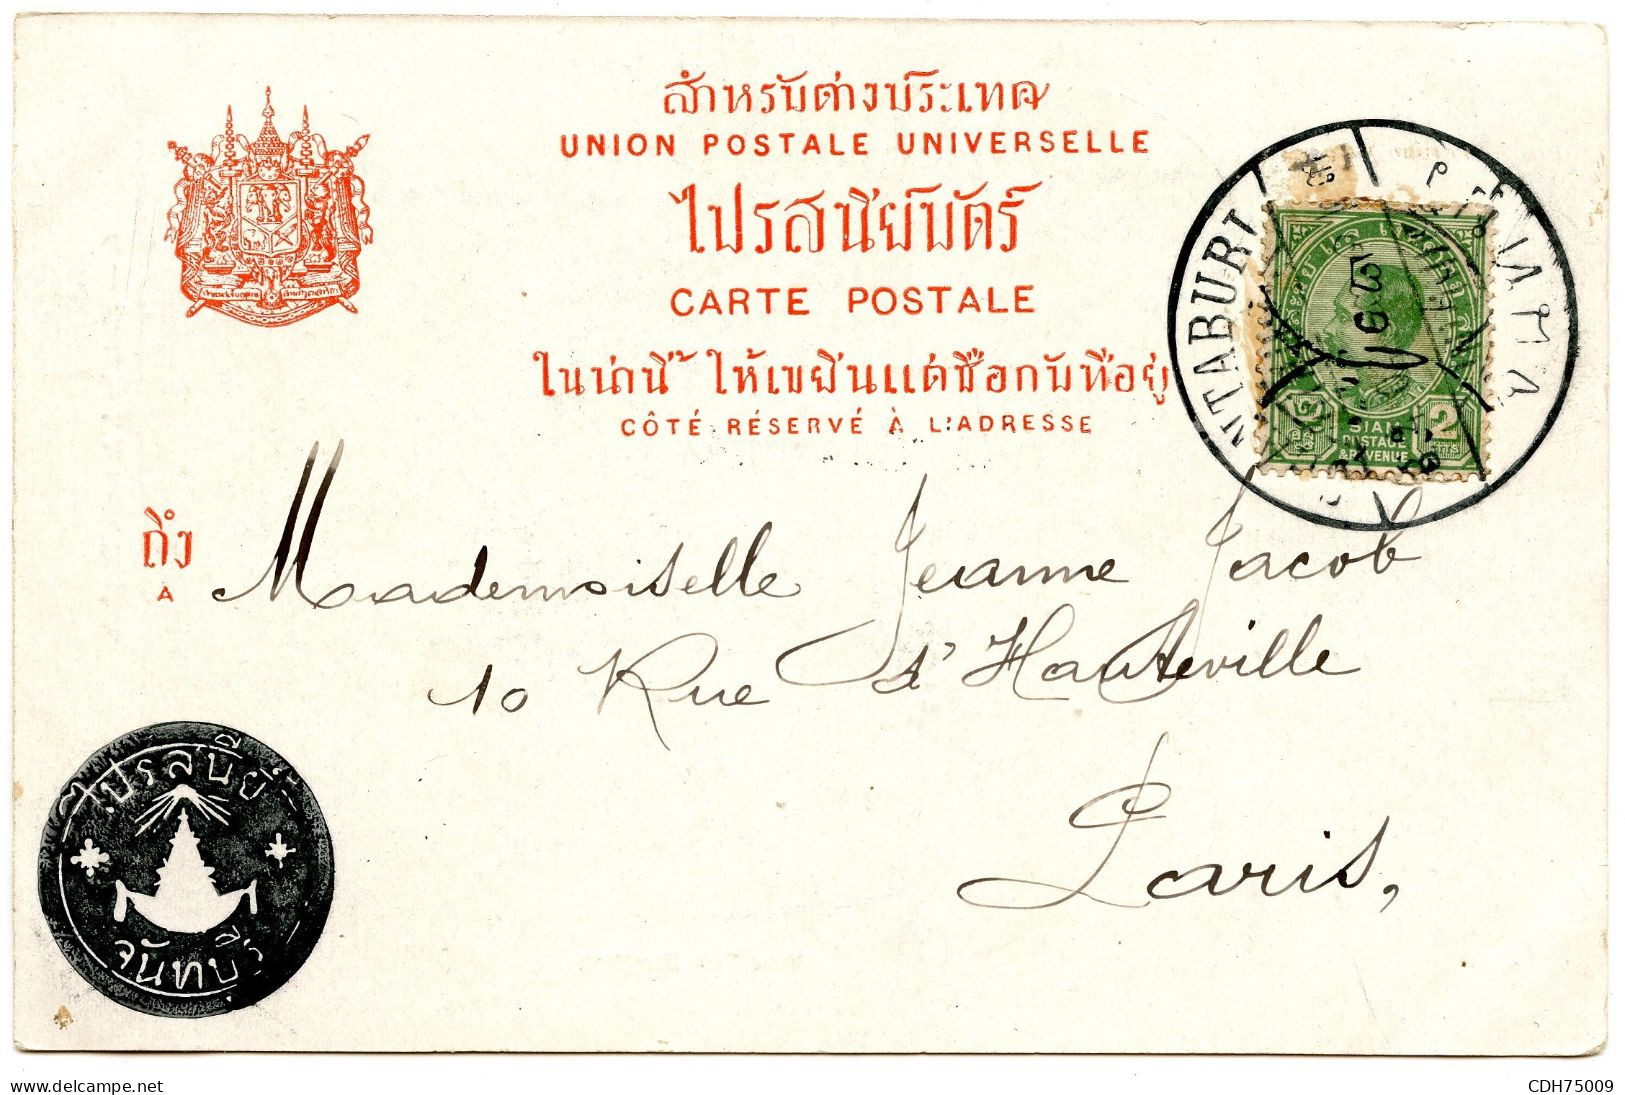 สำหรับต่างประเทศ
UNION POSTALE UNIVERSELLE
ไปรสนีย์บัตร์
CARTE POSTALE
ในน่านี้ ให้เขียนแต่ชื่อกับที่อยู่
CÔTÉ RÉSERVÉ À L'ADRESSE
NTABURI
2
SIAM
POSTAGE
& REVENUE
ถึง
A
Mademoiselle Jeanne Jacob
10 Rue d'Hauteville
Paris,
ไปรสนีย์
จันทบุรี
CDH75009